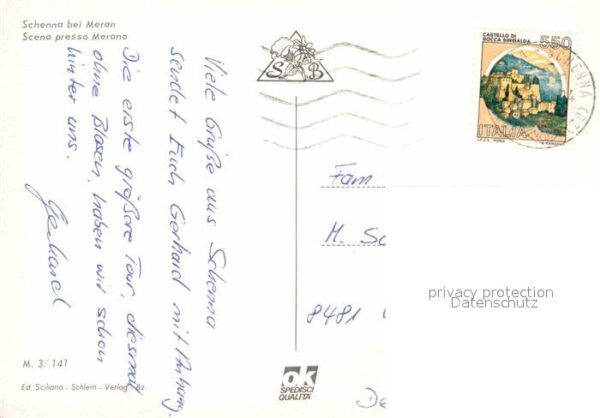 Schenna bei Meran
Scena presso Merano
Viele Grüße aus Schenna
sendet Euch Gerhard mit Anhang.
Die erste größere Tour, diesmal
ohne Blasen, haben wir schon
hinter uns.
Gerhard
S B
CASTELLO DI
ROCCA SINIBALDA
550
ITALIA
Fam
M. Sc
8481
De
privacy protection
Datenschutz
M. 3/141
Ed. Sciliano - Schlern - Verlag - Bz.
ok
SPEDISCI
QUALITÀ